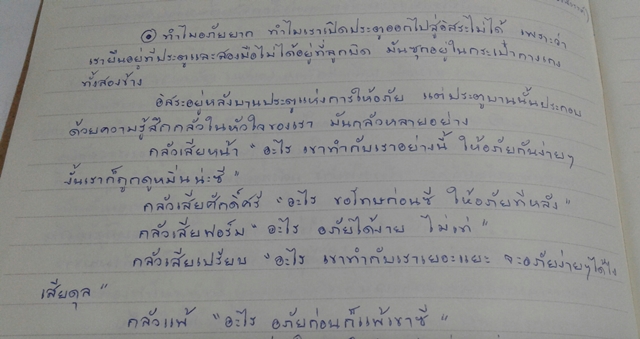 ⊙ ทำไมอภัยยาก ทำไมเราเปิดประตูออกไปสู่อิสระไม่ได้ เพราะว่า
เรายืนอยู่ที่ประตูและสองมือไม่ได้อยู่ที่ลูกบิด มันซุกอยู่ในกระเป๋ากางเกง
ทั้งสองข้าง
อิสระอยู่หลังบานประตูแห่งการให้อภัย แต่ประตูบานนั้นประกอบ
ด้วยความรู้สึกกลัวในหัวใจของเรา มันกลัวหลายอย่าง
กลัวเสียหน้า "อะไร เขาทำกับเราอย่างนี้ ให้อภัยกันง่ายๆ
งั้นเราก็ถูกดูหมิ่นน่ะซี"
กลัวเสียศักดิ์ศรี "อะไร ขอโทษก่อนซี ให้อภัยทีหลัง"
กลัวเสียฟอร์ม "อะไร อภัยได้ง่าย ไม่เท่"
กลัวเสียเปรียบ "อะไร เขาทำกับเราเยอะแยะ จะอภัยง่ายๆได้ไง
เสียดุล"
กลัวแพ้ "อะไร อภัยก่อนก็แพ้เขาซี"